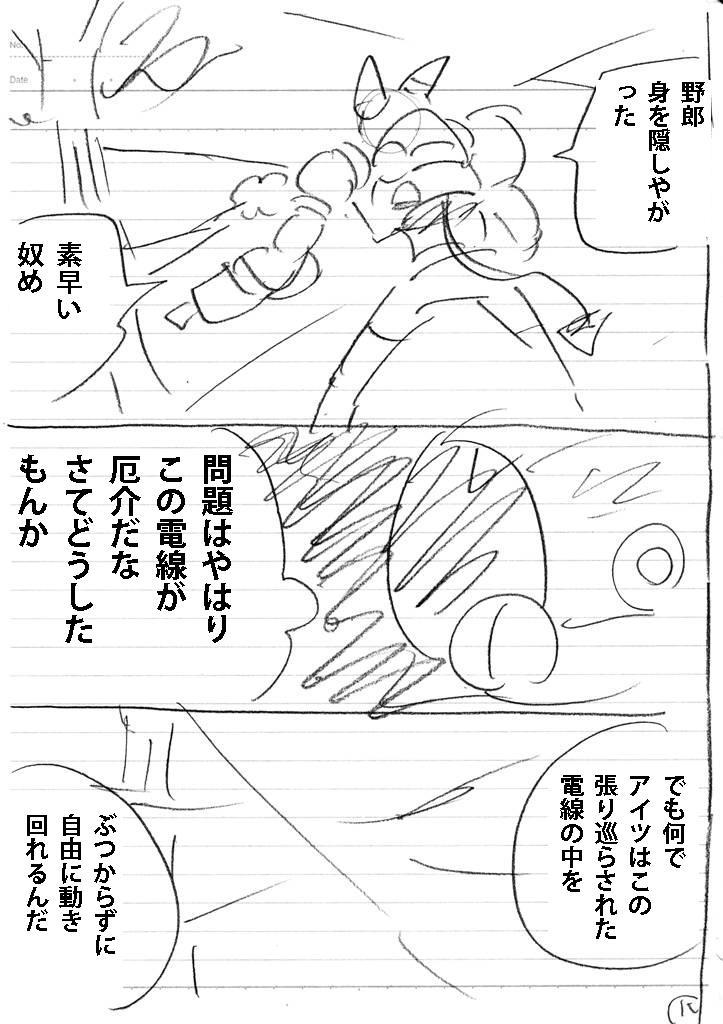 No.
Date
野郎
身を隠しやが
った
素早い
奴め
問題はやはり
この電線が
厄介だな
さてどうした
もんか
でも何で
アイツはこの
張り巡らされた
電線の中を
ぶつからずに
自由に動き
回れるんだ